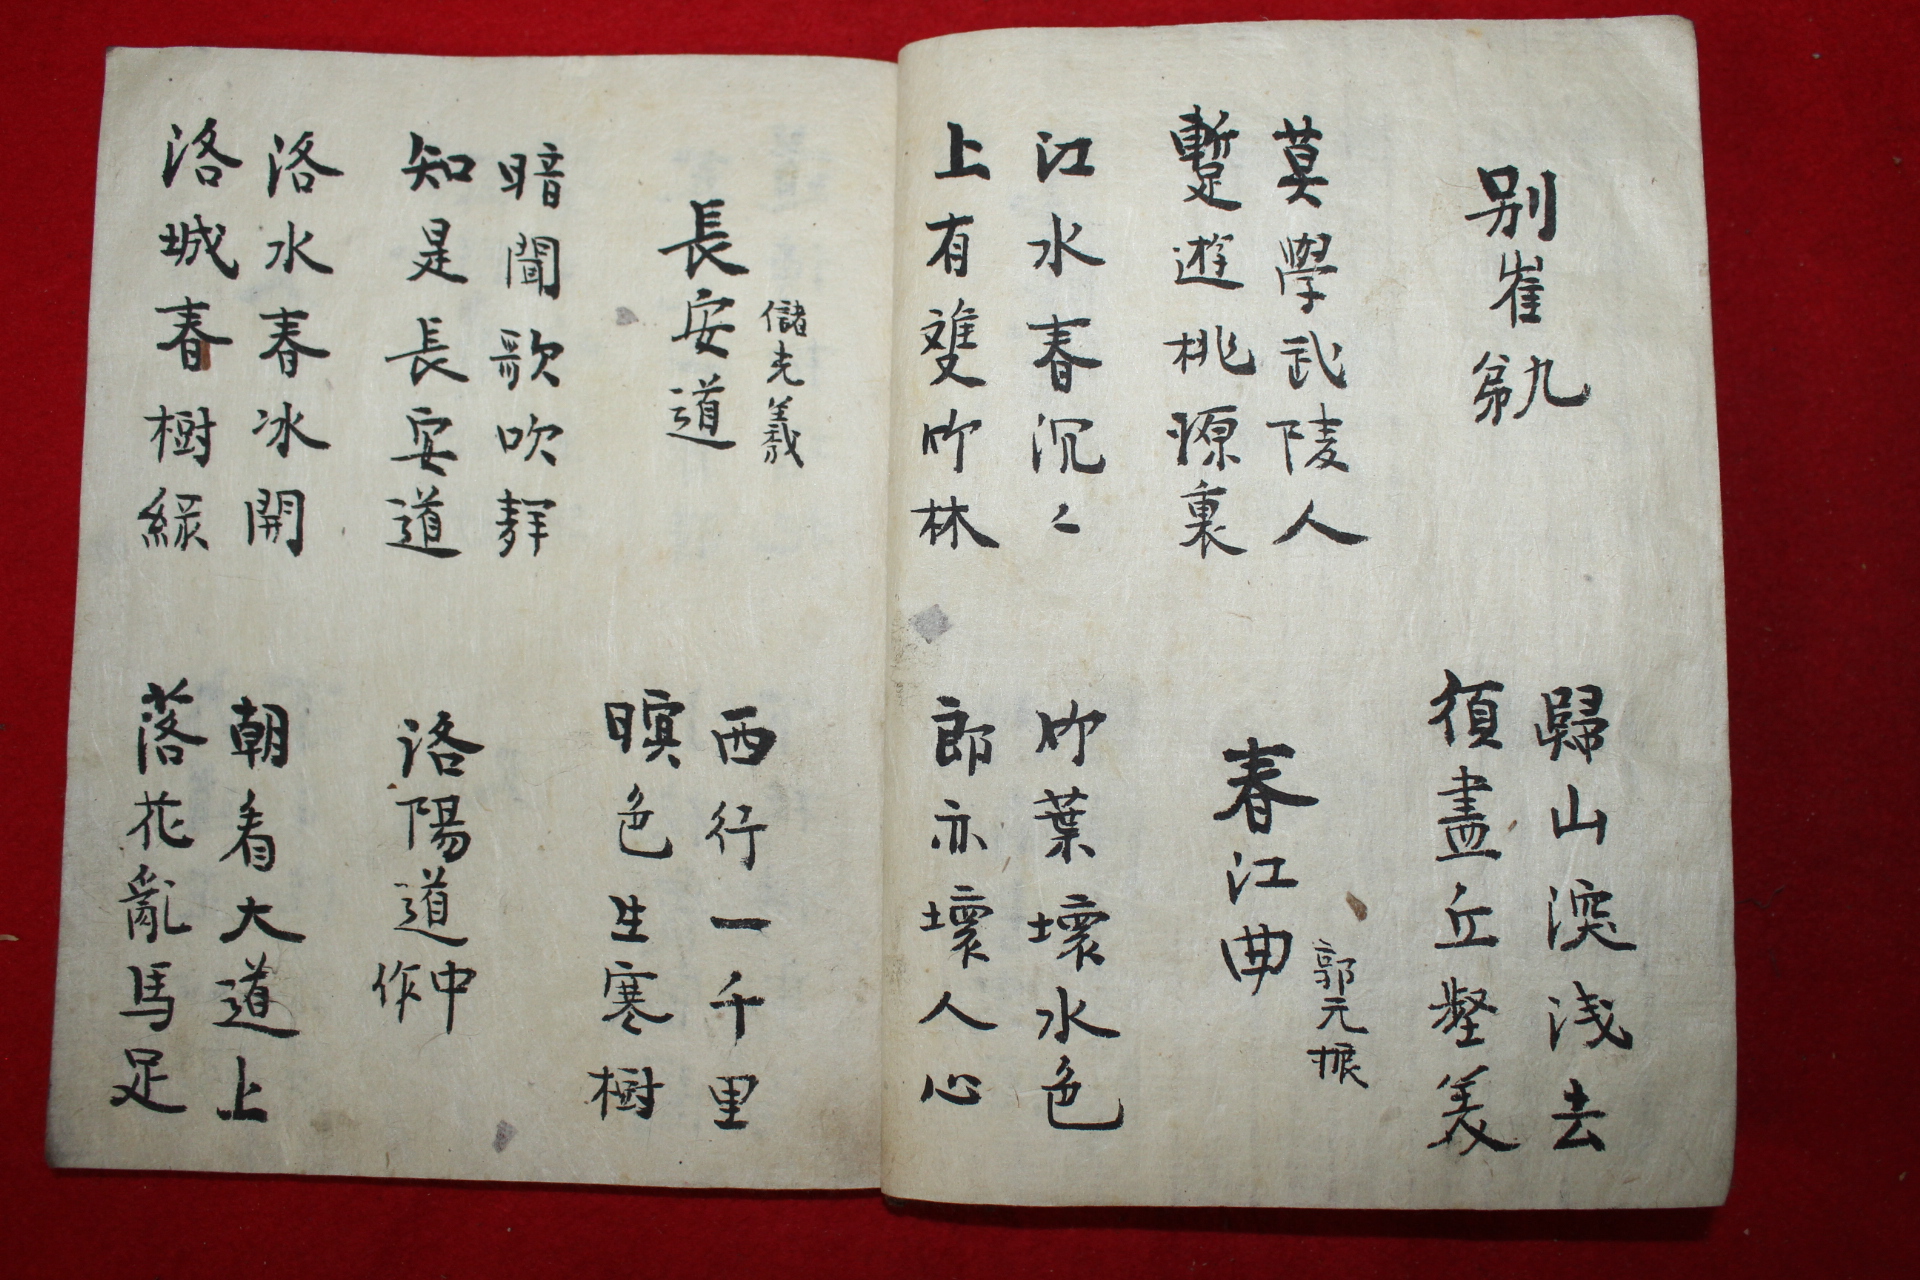 別崔九弟
歸山深浅去
須盡丘壑美
莫學武陵人
暫遊桃源裏
春江曲
郭元振
江水春沉々
上有雙竹林
竹葉壞水色
郎亦壞人心
儲光羲
長安道
西行一千里
暝色生寒樹
暗聞歌吹聲
知是長安道
洛陽道中作
洛水春冰開
洛城春樹綠
朝看大道上
落花亂馬足